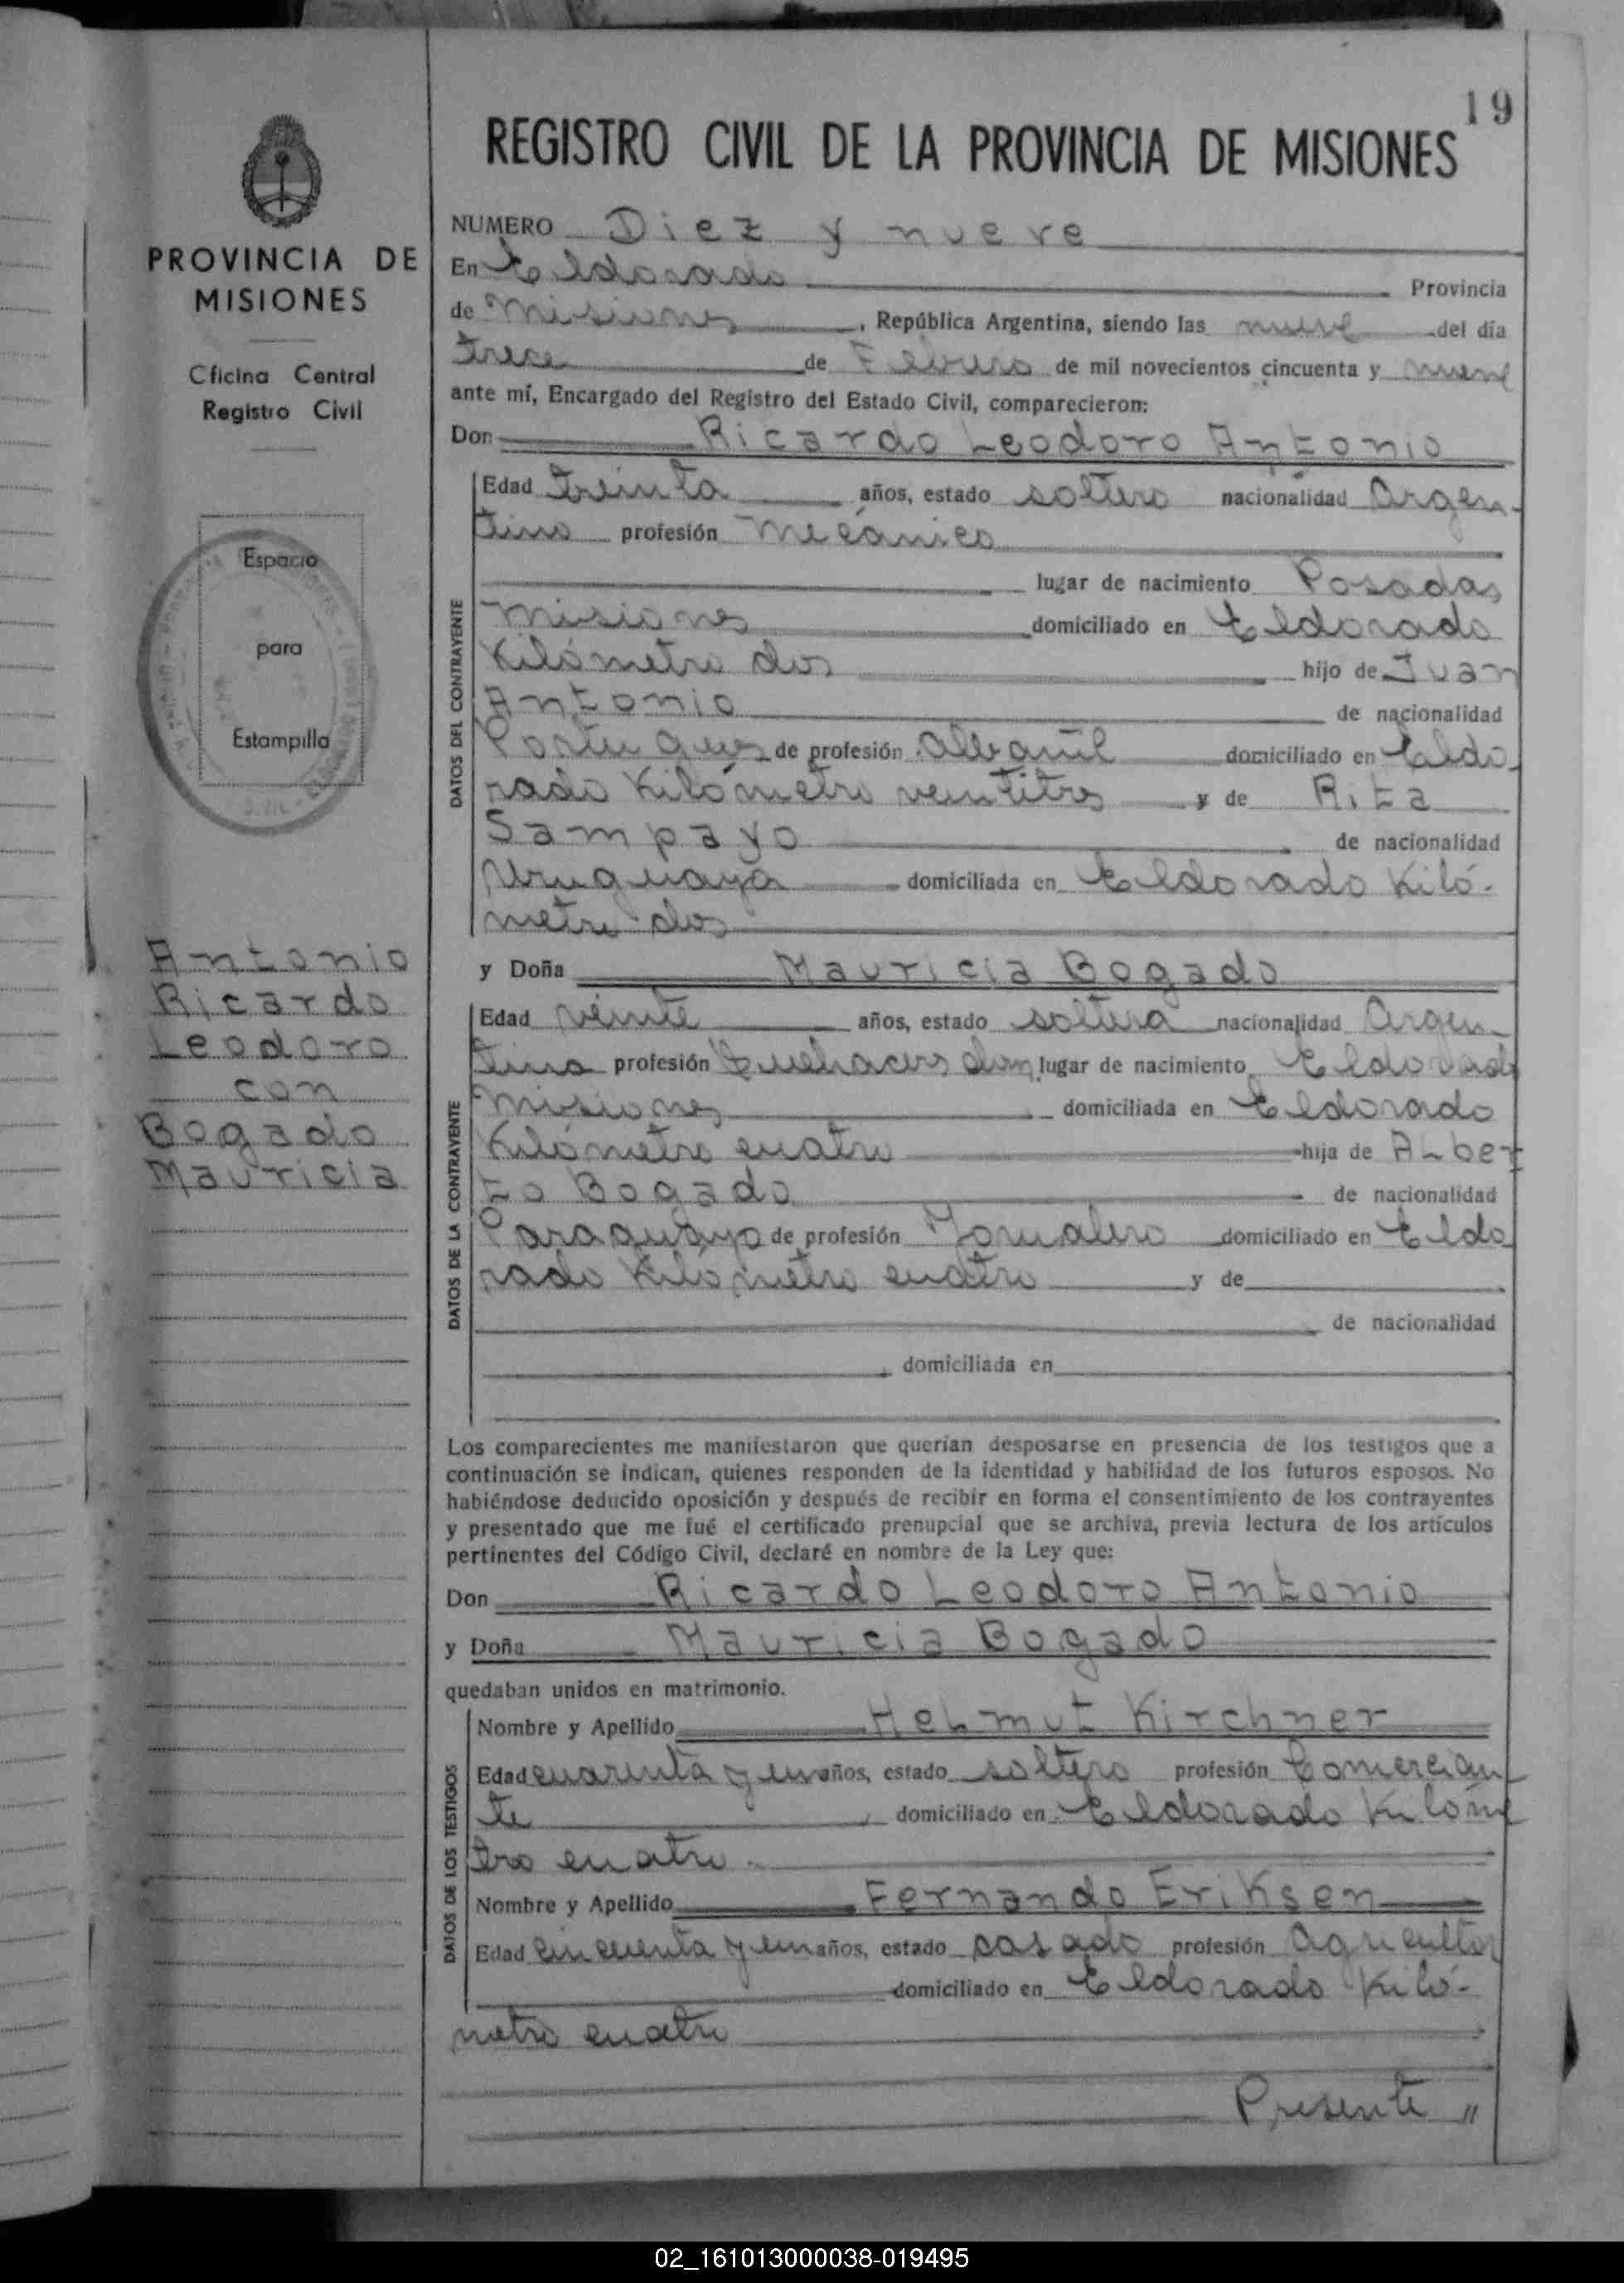 19
REGISTRO CIVIL DE LA PROVINCIA DE MISIONES
PROVINCIA DE
MISIONES
Oficina Central
Registro Civil
Espacio
para
Estampilla
Antonio
Ricardo
Leodoro
con
Bogado
Mauricia
NUMERO Diez y nueve
En Eldorado Provincia
de Misiones, República Argentina, siendo las nueve del día
trece de Febrero de mil novecientos cincuenta y nueve
ante mí, Encargado del Registro del Estado Civil, comparecieron:
Don Ricardo Leodoro Antonio
DATOS DEL CONTRAYENTE
Edad treinta años, estado soltero nacionalidad Argen-
tino profesión Mecánico
lugar de nacimiento Posadas
Misiones domiciliado en Eldorado
Kilómetro dos hijo de Juan
Antonio de nacionalidad
Portugues de profesión Albañil domiciliado en Eldo-
rado Kilómetro veintitres y de Rita
Sampayo de nacionalidad
Uruguaya domiciliada en Eldorado Kiló-
metro dos
y Doña Mauricia Bogado
DATOS DE LA CONTRAYENTE
Edad veinte años, estado soltera nacionalidad Argen-
tina profesión Quehaceres dom. lugar de nacimiento Eldorado
Misiones domiciliada en Eldorado
Kilómetro cuatro hija de Alber-
to Bogado de nacionalidad
Paraguayo de profesión Jornalero domiciliado en Eldo
rado Kilómetro cuatro y de
de nacionalidad
domiciliada en
Los comparecientes me manifestaron que querían desposarse en presencia de los testigos que a
continuación se indican, quienes responden de la identidad y habilidad de los futuros esposos. No
habiéndose deducido oposición y después de recibir en forma el consentimiento de los contrayentes
y presentado que me fué el certificado prenupcial que se archiva, previa lectura de los artículos
pertinentes del Código Civil, declaré en nombre de la Ley que:
Don Ricardo Leodoro Antonio
y Doña Mauricia Bogado
quedaban unidos en matrimonio.
DATOS DE LOS TESTIGOS
Nombre y Apellido Helmut Kirchner
Edad cuarenta y un años, estado soltero profesión Comercian-
te domiciliado en Eldorado Kilóme
tro cuatro
Nombre y Apellido Fernando Eriksen
Edad cincuenta y un años, estado casado profesión Agricultor
domiciliado en Eldorado Kiló-
metro cuatro
Presente "
02_161013000038-019495